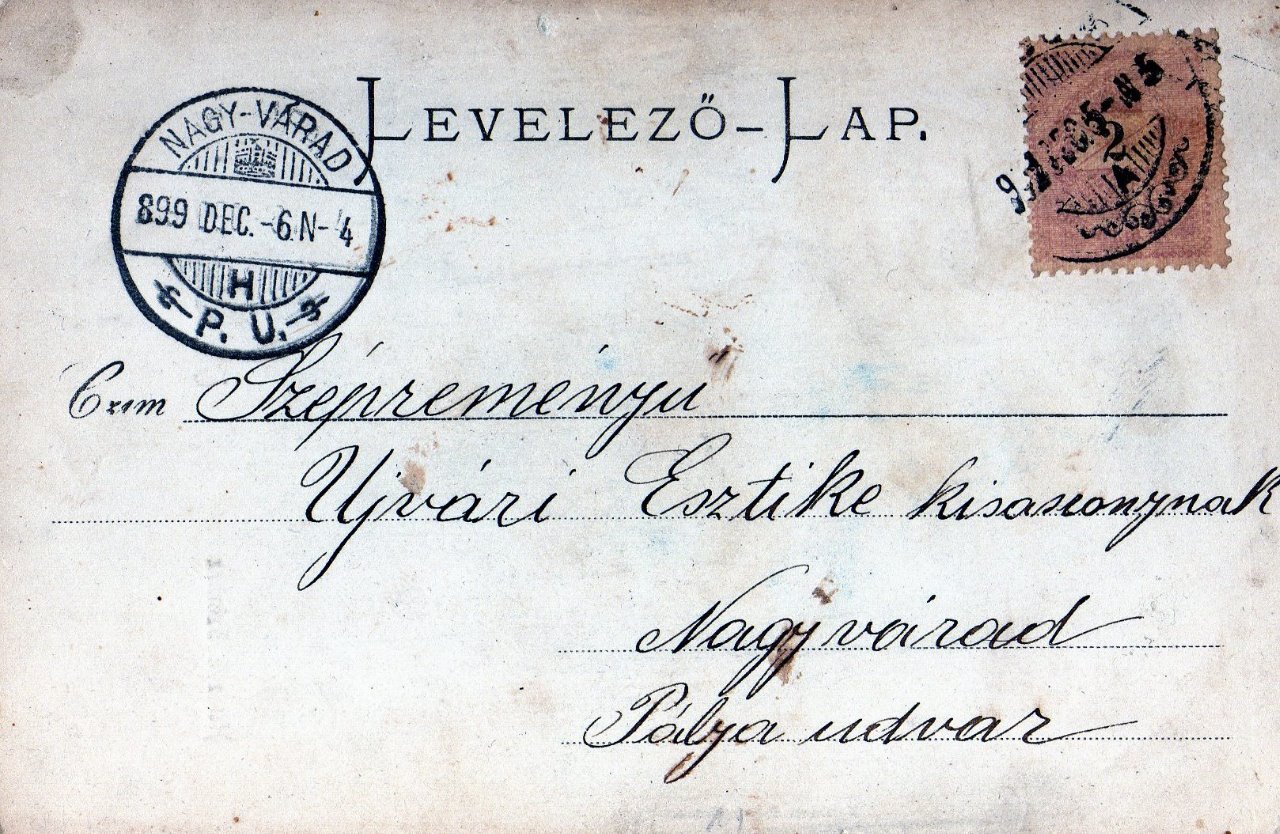 LEVELEZŐ-LAP.
NAGY-VÁRAD
899 DEC.-6.N-4
H
P. U.
2
A
Czim Szépreményu
Ujvári Esztike kisasszonynak
Nagyvárad
Pálya udvar